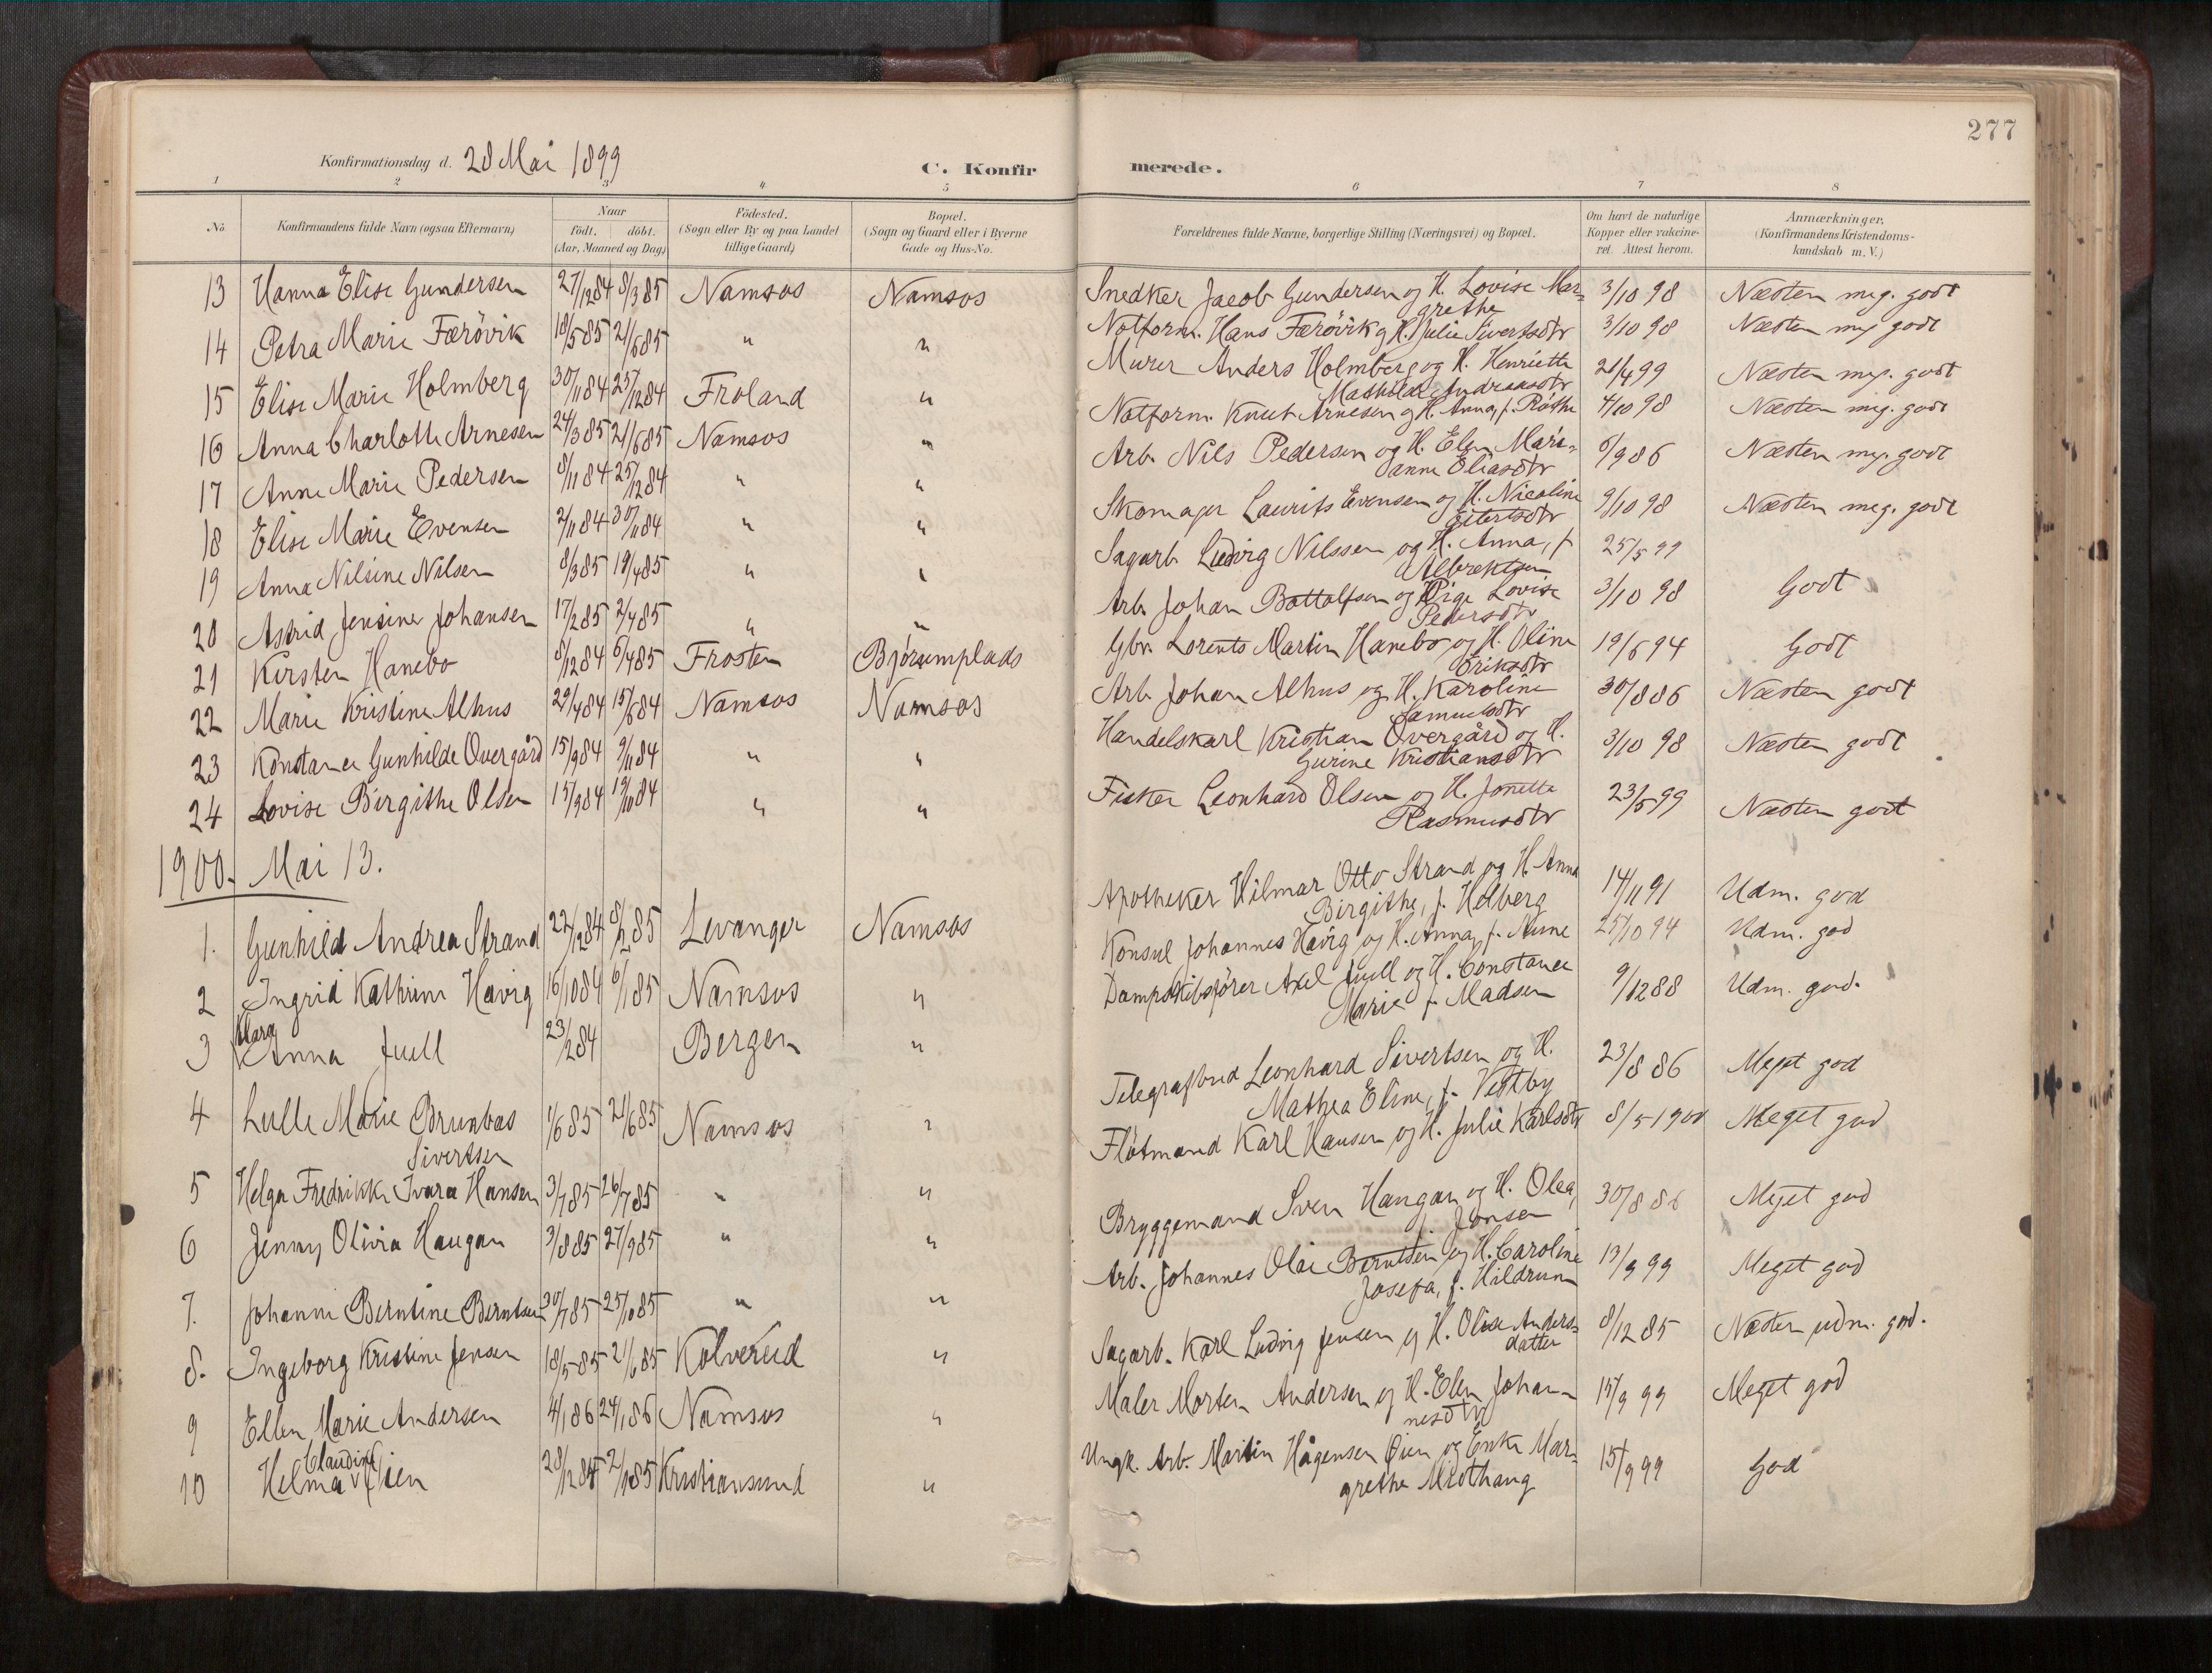 277
Konfirmationsdag d. 28 Mai 1899
C. Konfirmerede.
1 2 3 4 5 6 7 8
No Konfirmandens fulde Navn (ogsaa Efternavn) Naar födt. döbt. (Aar, Maaned og Dag) Födested. (Sogn eller By og paa Landet tillige Gaard) Bopæl. (Sogn og Gaard eller i Byerne Gade og Hus-No. Forældrenes fulde Navne, borgerlige Stilling (Næringsvei) og Bopæl. Om havt de naturlige Kopper eller vakcineret. Attest herom. Anmærkninger, (Konfirmandens Kristendomskundskab m. V.)
13 Hanna Elise Gundersen 27/12 84 8/3 85 Namsos Namsos Snedker Jacob Gundersen og H. Lovise Mar= 3/10 98 Næsten meg. godt
grethe
14 Petra Marie Færövik 18/5 85 21/6 85 " " Notform. Hans Færövik og H. Julie Sivertsdtr 3/10 98 Næsten meg godt
15 Elise Marie Holmberg 30/11 84 25/12 84 Froland " Murer Anders Holmberg og H. Henriette 21/4 99 Næsten meg. godt
Mathilde Andreasdtr
16 Anna Charlotte Arnesen 24/3 85 21/6 85 Namsos " Notform. Knut Arnesen og H. Anna, f. Røthe 4/10 98 Næsten meg. godt
17 Anne Marie Pedersen 8/11 84 25/12 84 " " Arb. Nils Pedersen og H. Elen Mari= 6/9 86 Næsten meg. godt
anne Eliasdtr
18 Elise Marie Evensen 2/11 84 30/11 84 " " Skomager Laurits Evensen og H. Nicoline 9/10 98 Næsten meg. godt
Eilertsdtr
19 Anna Nilsine Nilsen 8/3 85 19/4 85 " " Sagarb. Ludvig Nilssen og H. Anna, f 25/5 99
Albrektsen
20 Astrid Jensine Johansen 17/2 85 2/4 85 " " Arb. Johan Bottolfsen og Pige Lovise 3/10 98 Godt
Pedersdtr
21 Kirsten Hanebo 8/12 84 6/4 85 Frosten Bjørumplads Gbr. Lorents Martin Hanebo og H. Oline 19/6 94 Godt
Eriksdtr
22 Marie Kristine Alhus 29/4 84 15/6 84 Namsos Namsos Arb. Johan Alhus og H. Karoline 30/8 86 Næsten godt
Samuelsdtr
23 Konstance Gunhilde Overgård 15/9 84 9/11 84 " " Handelskarl Kristian Overgård og H. 3/10 98 Næsten godt
Gurine Kristiansdtr
24 Lovise Birgithe Olsen 15/9 84 19/10 84 " " Fisker Leonhard Olsen og H. Jonette 23/5 99 Næsten godt
Rasmusdtr
1900. Mai 13.
1. Gunhild Andrea Strand 22/12 84 8/2 85 Levanger Namsos Apotheker Hilmar Otto Strand og H. Anna 14/11 91 Udm. god
Birgithe, f. Holberg
2 Ingrid Kathrine Havig 16/10 84 6/1 85 Namsos " Konsul Johannes Havig og H. Anna, f. Aune 25/10 94 Udm. god
3 Klara Anna Juell 23/2 84 Bergen " Dampskibsfører Axel Juell og H. Constance 9/12 88 Udm. god.
Marie f. Madsen
4 Lulle Marie Brunbas 1/6 85 21/6 85 Namsos " Telegrafbud Leonhard Sivertsen og H. 23/8 86 Meget god
Sivertsen Mathea Eline, f. Vestby
5 Helga Fredrikke Ivara Hansen 3/7 85 26/7 85 " " Fløtmand Karl Hansen og H. Julie Karlsdtr 8/5 1900 Meget god
6 Jenny Olivia Haugan 3/8 85 27/9 85 " " Bryggemand Sven Haugan og H. Olea, 30/8 86 Meget god
f. Jonsen
7. Johanne Berntine Berntsen 30/7 85 25/10 85 " " Arb. Johannes Olai Berntsen og H. Caroline 13/9 99 Meget god
Josefa, f. Hildrum
8. Ingeborg Kristine Jensen 18/5 85 21/6 85 Kolvereid " Sagarb. Karl Ludvig Jensen og H. Olise Anders= 8/12 85 Næsten udm. god.
datter
9 Ellen Marie Andersen 4/1 86 24/1 86 Namsos " Maler Morten Andersen og H. Elen Johan= 15/9 99 Meget god
nesdtr
10 Helma Claudine Øien 28/12 84 2/1 85 Kristiansund " Ungk. Arb. Martin Hågensen Øien og Enke Mar= 15/9 99 God
grethe Midthaug